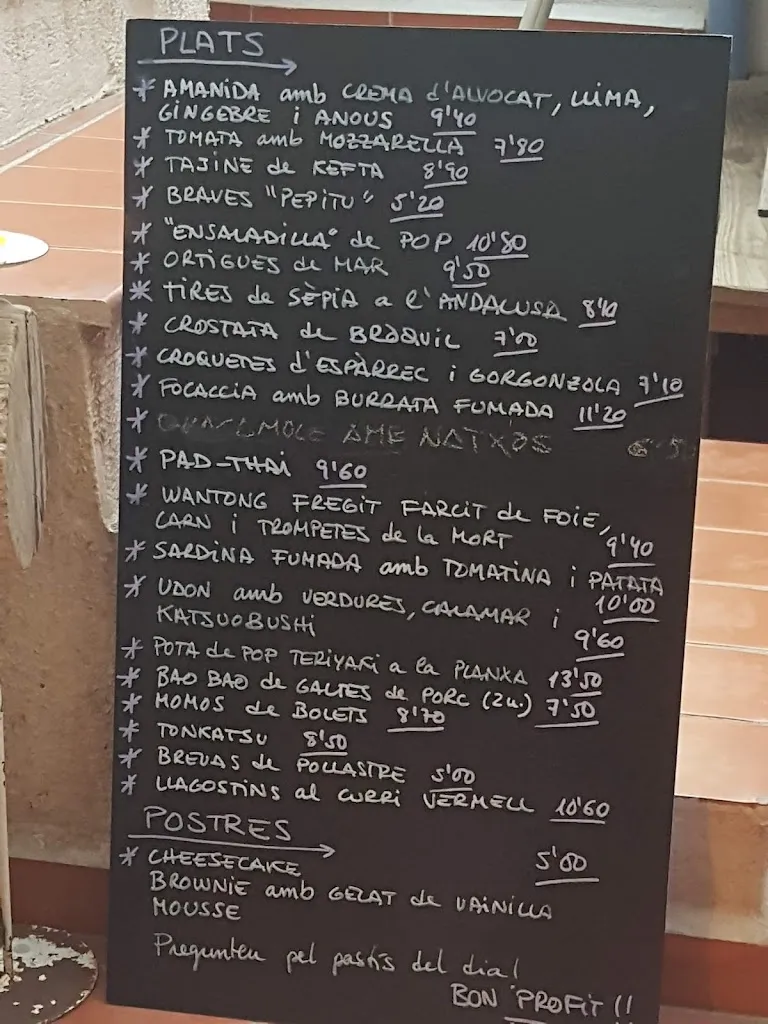 PLATS
* AMANIDA amb CREMA d'ALVOCAT, LLIMA,
GINGEBRE i ANOUS 9'40
* TOMATA amb MOZZARELLA 7'80
* TAJINE de KEFTA 8'90
* BRAVES "PEPITU" 5'20
* "ENSALADILLA" de POP 10'80
* ORTIGUES de MAR 9'50
* TIRES de SÈPIA a l'ANDALUSA 8'10
* CROSTATA de BRÒQUIL 7'00
* CROQUETES d'ESPÀRREC i GORGONZOLA 7'10
* FOCACCIA amb BURRATA FUMADA 11'20
* GUACAMOLE AMB NATXOS
* PAD-THAI 9'60
* WANTONG FREGIT FARCIT de FOIE,
CARN i TROMPETES de la MORT 9'40
* SARDINA FUMADA amb TOMATINA i PATATA
10'00
* UDON amb VERDURES, CALAMAR i
KATSUOBUSHI 9'60
* POTA de POP TERIYAKI a la PLANXA 13'50
* BAO BAO de GALTES de PORC (2u.) 7'50
* MOMOS de BOLETS 8'70
* TONKATSU 8'50
* BREVAS de POLLASTRE 5'00
* LLAGOSTINS al CURRI VERMELL 10'60
POSTRES
* CHEESECAKE 5'00
BROWNIE amb GELAT de VAINILLA
MOUSSE
Pregunteu pel pastís del dia!
BON PROFIT!!